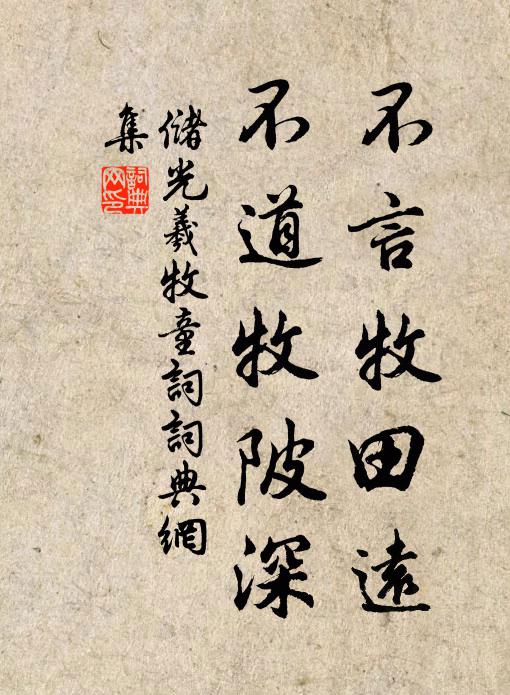 不言牧田遠
不道牧陂深
儲光羲牧童詞詞典網
集
詞典網印